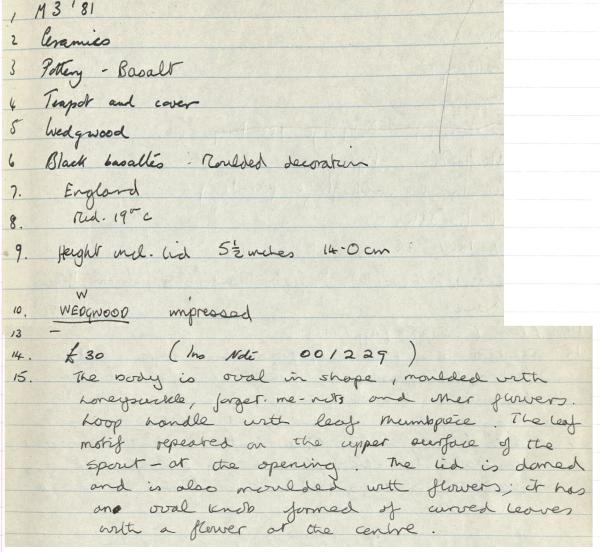 1 M3 '81
2 Ceramics
3 Pottery - Basalt
4 Teapot and cover
5 Wedgwood
6 Black basaltes - Moulded decoration
7. England
8. Mid. 19th c
9. Height incl. lid 5½ inches 14.0 cm
W
10. WEDGWOOD impressed
13 –
14. £30 (Ins Note 001229)
15. The body is oval in shape, moulded with
honeysuckle, forget-me-nots and other flowers.
Loop handle with leaf thumbpiece. The leaf
motif repeated on the upper surface of the
spout - at the opening. The lid is domed
and is also moulded with flowers; it has
an oval knob formed of curved leaves
with a flower at the centre.